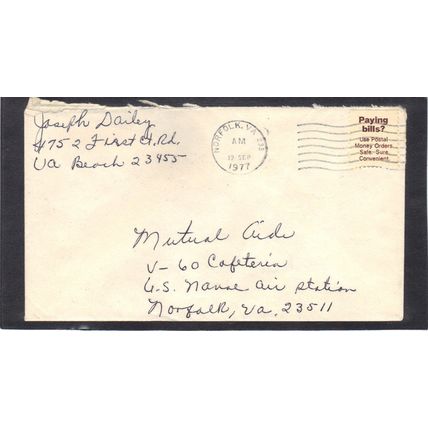 Joseph Dailey
4752 First Ct. Rd.
Va Beach 23455
NORFOLK, VA 233
AM
12 SEP
1977
Paying
bills?
Use Postal
Money Orders.
Safe. Sure.
Convenient.
Mutual Aide
V-60 Cafeteria
U.S. Naval air station
Norfolk, Va. 23511